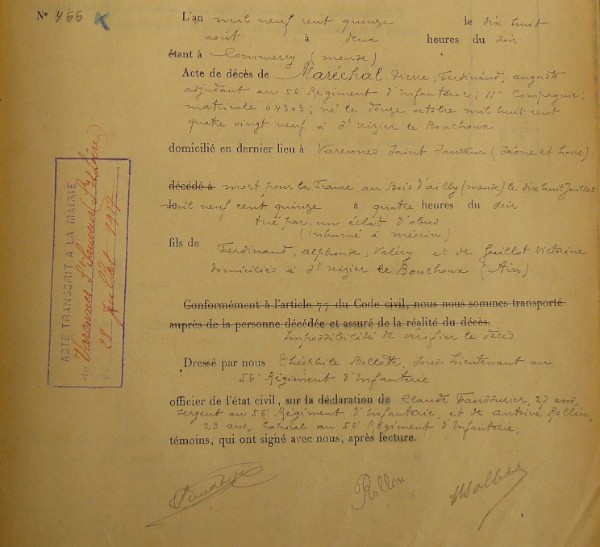 N° 466 K
L'an mil neuf cent quinze le dix huit
août à deux heures du soir
étant à Commercy (Meuse)
Acte de décès de Maréchal Pierre, Ferdinand, auguste
adjudant au 56e Régiment d'Infanterie, 11e Compagnie;
matricule 04303; né le douze octobre mil huit cent
quatre vingt neuf à St Nizier le Bouchoux
domicilié en dernier lieu à Varennes Saint Sauveur (Saône et Loire)
décédé à mort pour la France au Bois d'ailly (Meuse) le dix huit Juillet
mil neuf cent quinze à quatre heures du soir
tué par un éclat d'obus
(inhumé à Mécrin)
fils de Ferdinand, alphonse, Valéry et de Guillot Victorine
domiciliés à St Nizier le Bouchoux (Ain)
Conformément à l'article 77 du Code civil, nous nous sommes transporté
auprès de la personne décédée et assuré de la réalité du décès.
Impossibilité de vérifier le décès
Dressé par nous Théophile Sous Lieutenant au
56e Régiment d'Infanterie
officier de l'état civil, sur la déclaration de Claude 27 ans,
sergent au 56e Régiment d'Infanterie, et de Antoine Rollin,
23 ans, Caporal au 56e Régiment d'Infanterie,
témoins, qui ont signé avec nous, après lecture.
Rollin
ACTE TRANSCRIT A LA MAIRIE
de Varennes St Sauveur (S et Loire)
Juillet 1917